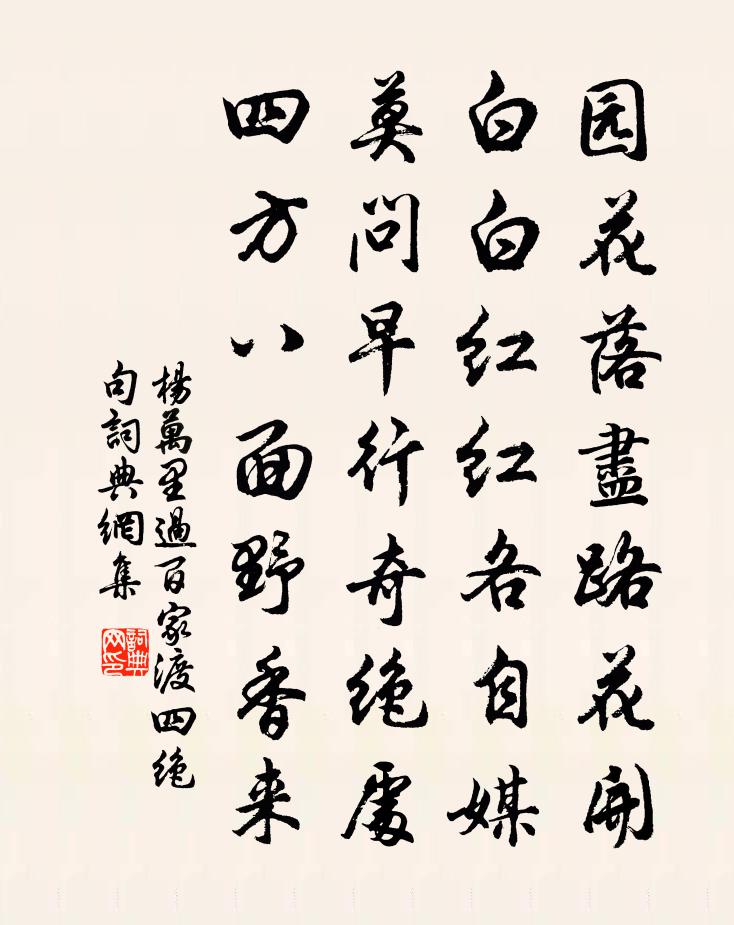 园花落盡路花開
白白红红各自媒
莫问早行奇绝處
四方八面野香来
楊萬里過百家渡四绝
句詞典網集
詞典网印